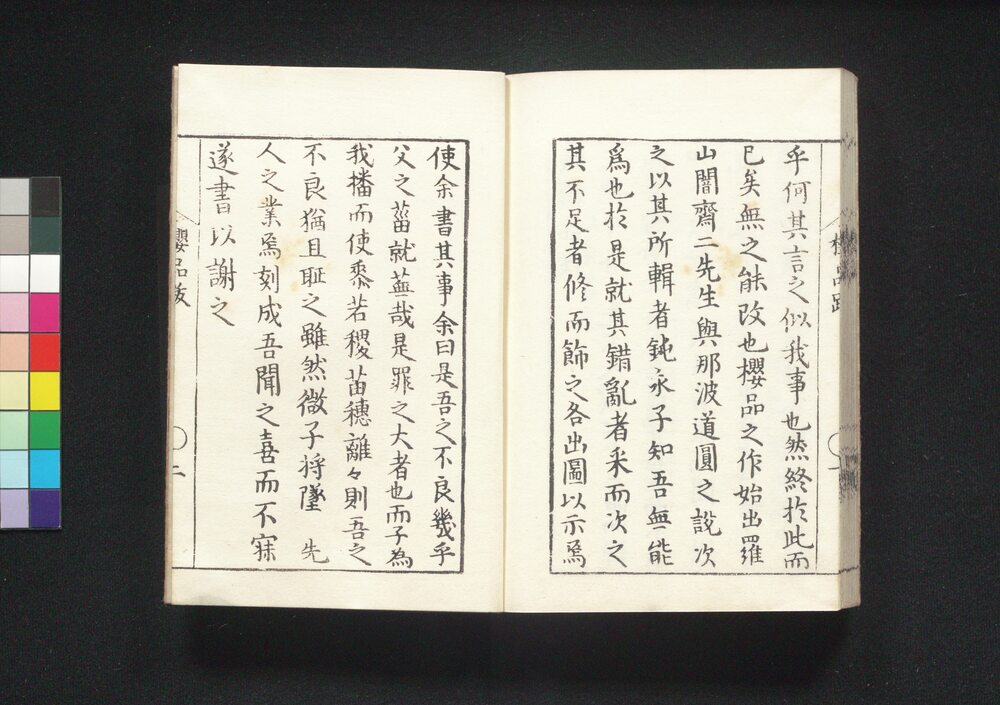 乎何其言之似我事也然終於此而
已矣無之能改也櫻品之作始出羅
山闇齋二先生與那波道圓之說次
之以其所輯者鈍永子知吾無能
爲也於是就其錯亂者采而次之
其不足者修而飾之各出圖以示焉
使余書其事余曰是吾之不良幾乎
父之菑就蕪哉是罪之大者也而子為
我播而使黍若稷苗穗離々則吾之
不良猶且耻之雖然微子將墜 先
人之業焉刻成吾聞之喜而不寐
遂書以謝之
櫻品跋
二